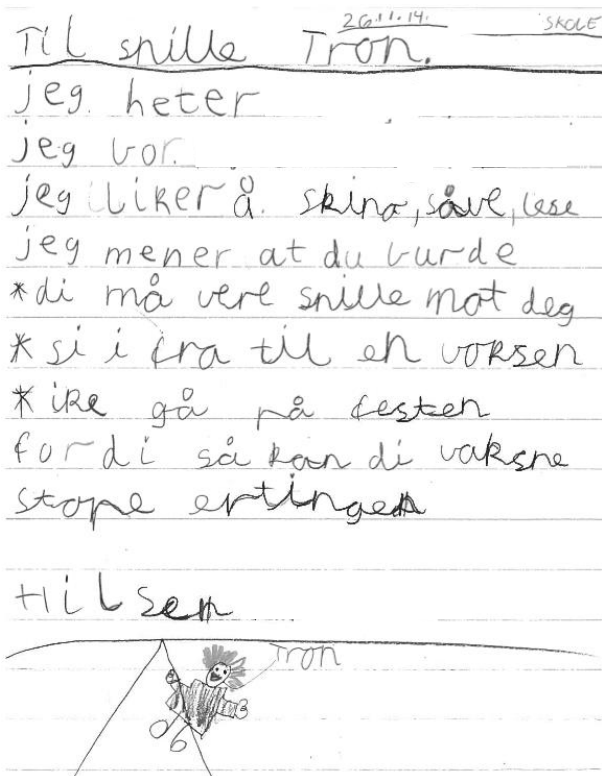 26.11.14. SKOLE
Til snille Tron.
jeg heter
jeg bor.
jeg liker å. skino, såve, lese
jeg mener at du burde
*di må vere snille mot deg
*si i fra til en voksen
*ike gå på festen
fordi så kan di vaksne
stope ertingen
Hilsen
Tron